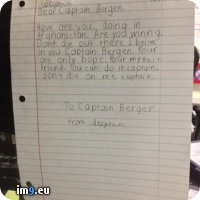 Dear Captain Bergen
How are you doing in
Afghanistan. Are you winning.
Dont die out there I belive
in you Captain Bergen. Your
are only hope. Your my best
friend. You can do it captain.
don't die on me captain.
To Captain Berger
from
im9.eu